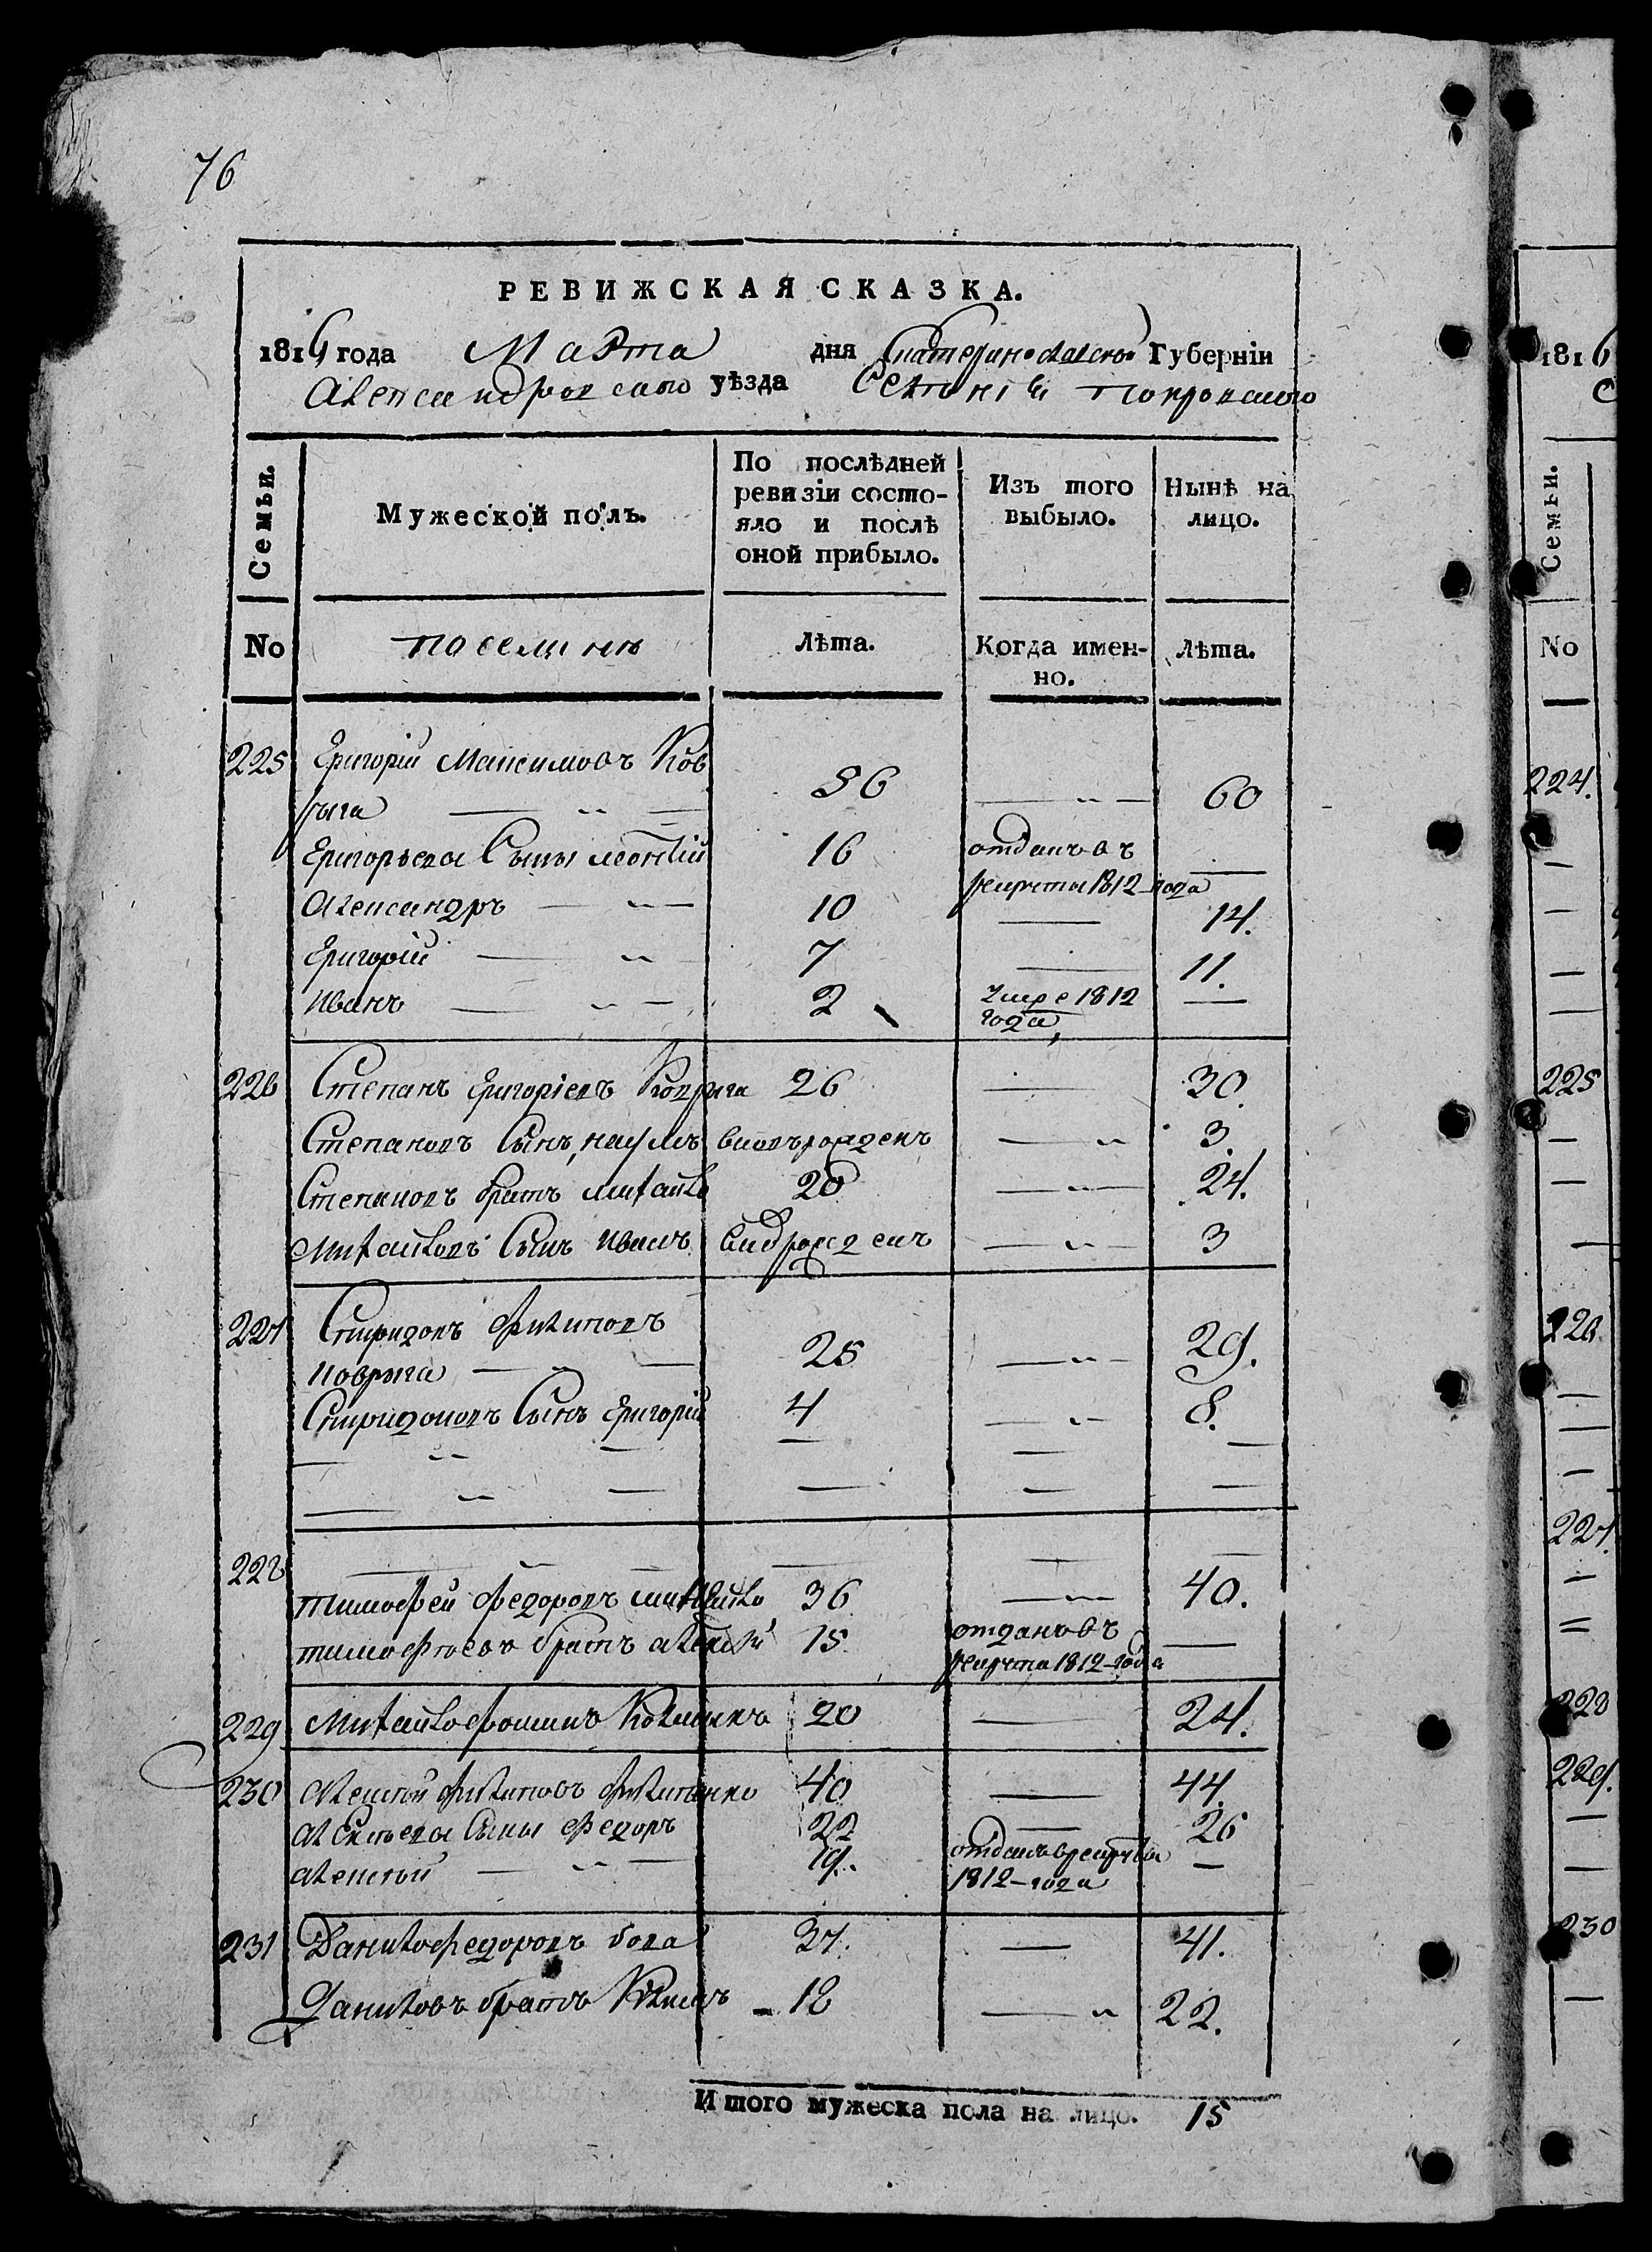 76
РЕВИЖСКАЯ СКАЗКА.
1816 года Марта дня Екатеринославской Губерніи
Александровскаго уѣзда Селенія Покровскаго
Семьи.
Мужеской полъ.
По послѣдней ревизіи состояло и послѣ оной прибыло.
Изъ того выбыло.
Нынѣ на лицо.
No
поселянѣ
Лѣта.
Когда именно.
Лѣта.
225 Григорій Максимовъ Ков
рыга 56 60
Григорьева Сыны Леонтій 16 отданъ въ
рекруты 1812 года
Александръ 10 14.
Григорій 7 11.
Иванъ 2 умре 1812
года
226 Степанъ Григоріевъ Коврыга 26 30.
Степановъ Сынъ, Наумъ вновърожденъ 3
Степановъ братъ Михайло 20 24.
Михайловъ Сынъ Иванъ вновърожденъ 3
227 Спиридонъ Филиповъ
Коврыга 25 29.
Спиридоновъ Сынъ Григорій 4 8.
228
Тимофей Федоровъ 36 40.
Тимофѣевъ братъ Алексѣй 15 отданъ въ
рекруты 1812 года
229 Михайло Фоминъ Колмыкъ 20 24.
230 Алексѣй Филиповъ Филипенко 40 44.
Алексѣева Сыны Федоръ 22 26
Алексѣй 19. отданъ в рекруты
1812 года
231 Данило Федоровъ 37. 41.
Даниловъ братъ Климъ 18 22.
Итого мужеска пола на лицо. 15
1816
Семьи.
No
224.
225
226.
227.
228
229.
230